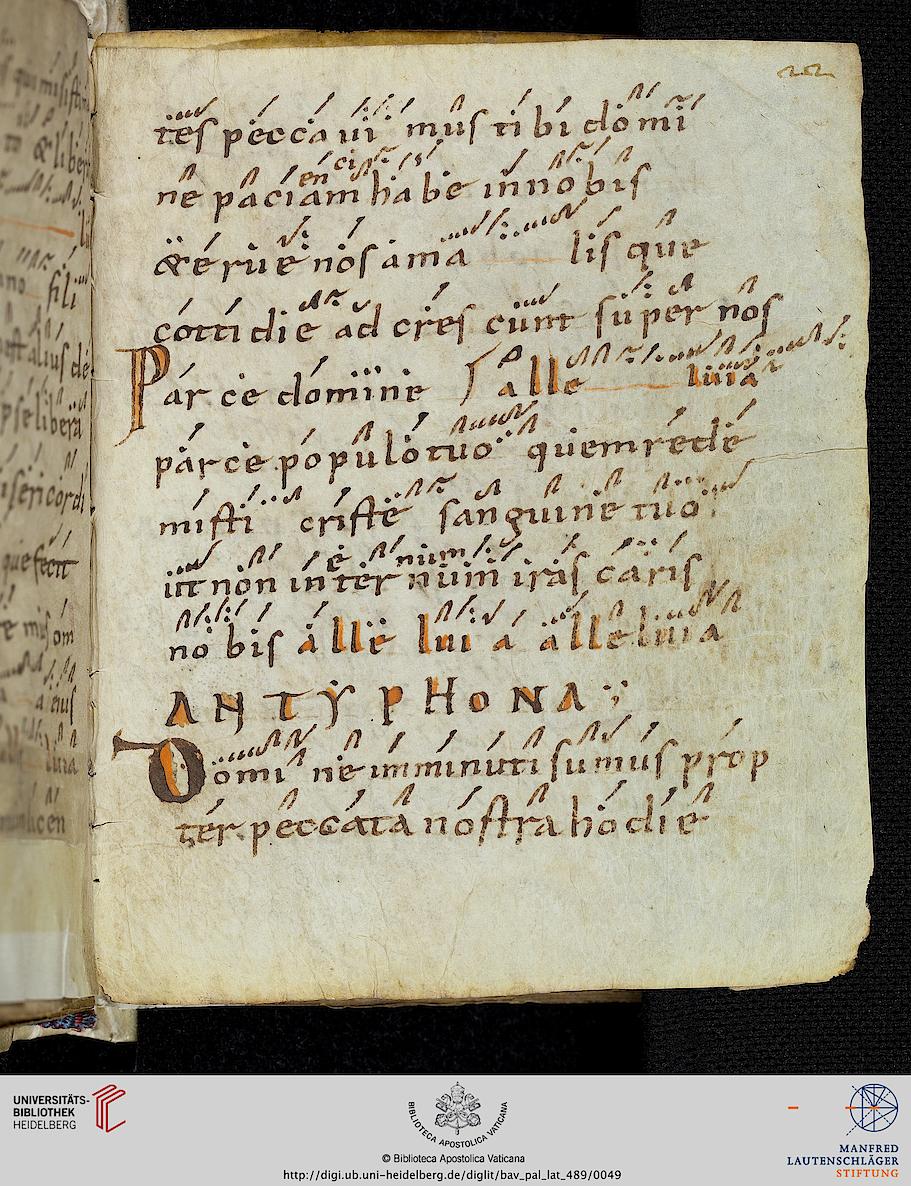 22
tes peccavi mus tibi domi
en ci
ne paciam habe in nobis
& erue nos a ma lis que
cottidie ad crescunt super nos
Parce domine alle luia
parce populo tuo quem rede
misti criste sanguine tuo
e num
ut non in ter num irascaris
nobis alle lui a alleluia
ANTYPHONA
Domi ne imminuti sumus prop
ter peccata nostra hodie
UNIVERSITÄTS-
BIBLIOTHEK
HEIDELBERG
BIBLIOTECA APOSTOLICA VATICANA
© Biblioteca Apostolica Vaticana
http://digi.ub.uni-heidelberg.de/diglit/bav_pal_lat_489/0049
MANFRED
LAUTENSCHLÄGER
STIFTUNG